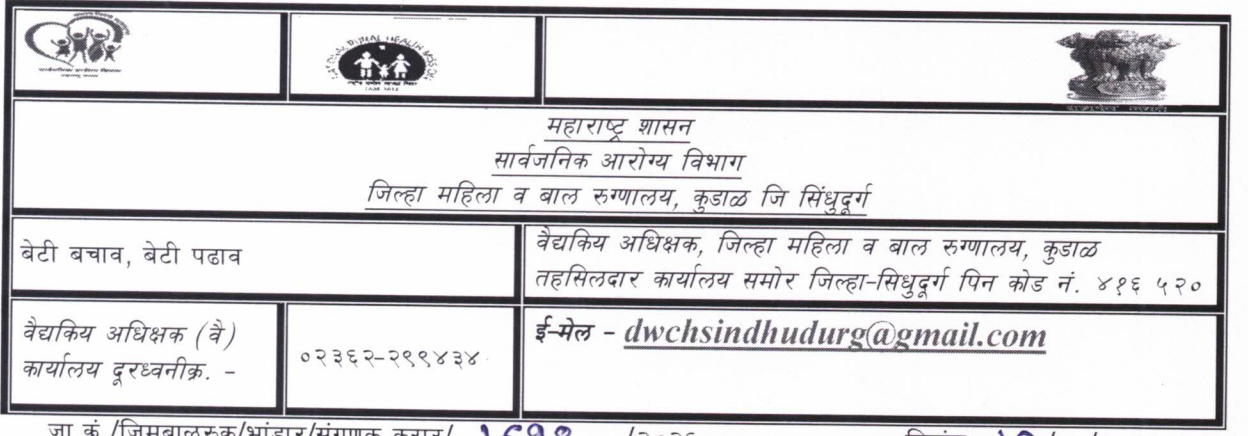 महाराष्ट्र शासन
सार्वजनिक आरोग्य विभाग
जिल्हा महिला व बाल रुग्णालय, कुडाळ जि सिंधुदूर्ग
बेटी बचाव, बेटी पढाव
वैद्यकिय अधिक्षक, जिल्हा महिला व बाल रुग्णालय, कुडाळ
तहसिलदार कार्यालय समोर जिल्हा-सिधुदूर्ग पिन कोड नं. ४१६ ५२०
वैद्यकिय अधिक्षक (वै)
कार्यालय दूरध्वनीक्र. -
०२३६२-२९९४३४
ई-मेल - dwchsindhudurg@gmail.com